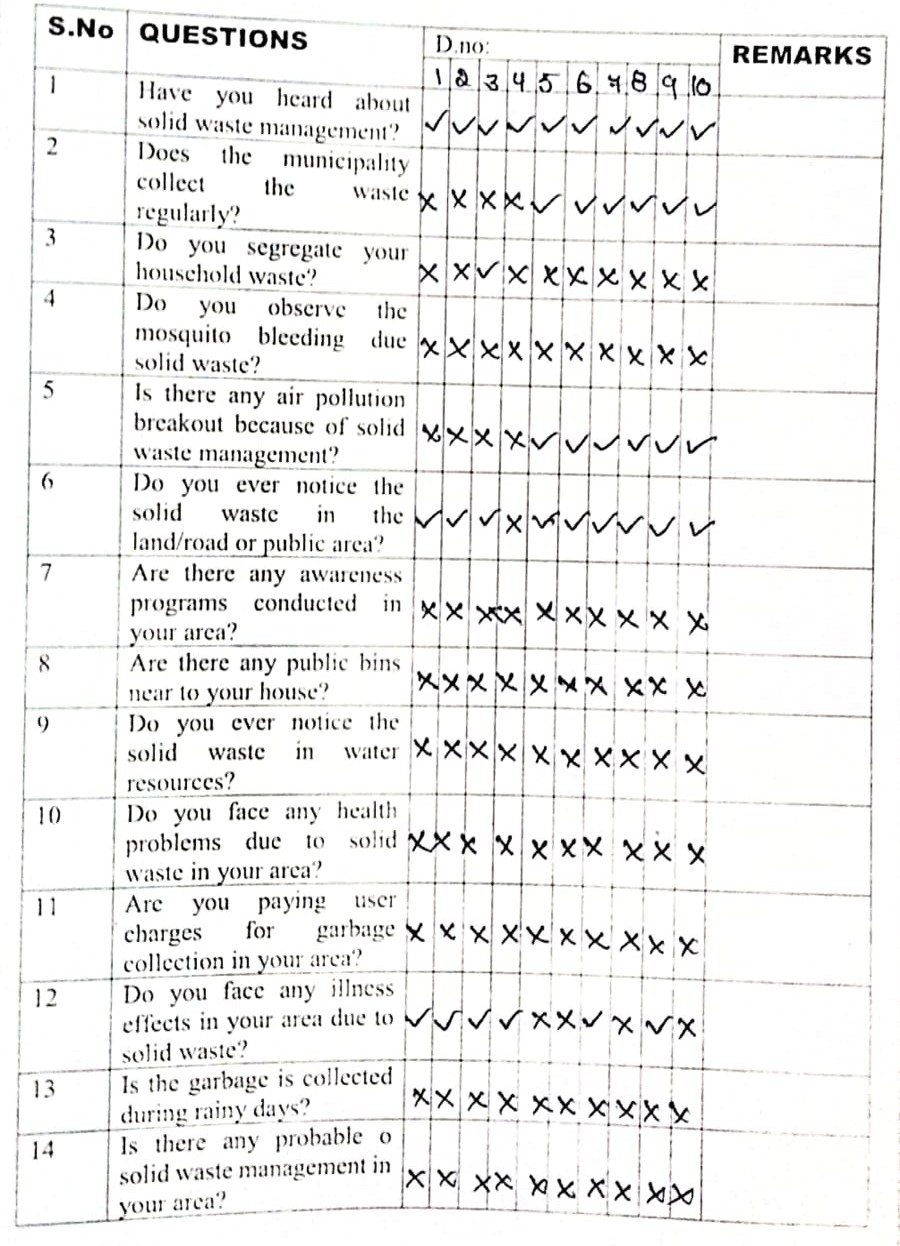 S.No QUESTIONS D.no: REMARKS
1 2 3 4 5 6 7 8 9 10
1 Have you heard about
solid waste management? ✓ ✓ ✓ ✓ ✓ ✓ ✓ ✓ ✓ ✓
2 Does the municipality
collect the waste
regularly? × × × × ✓ ✓ ✓ ✓ ✓ ✓
3 Do you segregate your
household waste? × × ✓ × × × × × × ×
4 Do you observe the
mosquito bleeding due
solid waste? × × × × × × × × × ×
5 Is there any air pollution
breakout because of solid
waste management? × × × × ✓ ✓ ✓ ✓ ✓ ✓
6 Do you ever notice the
solid waste in the
land/road or public area? ✓ ✓ ✓ × ✓ ✓ ✓ ✓ ✓ ✓
7 Are there any awareness
programs conducted in
your area? × × × × × × × × × ×
8 Are there any public bins
near to your house? × × × × × × × × × ×
9 Do you ever notice the
solid waste in water
resources? × × × × × × × × × ×
10 Do you face any health
problems due to solid
waste in your area? × × × × × × × × × ×
11 Are you paying user
charges for garbage
collection in your area? × × × × × × × × × ×
12 Do you face any illness
effects in your area due to
solid waste? ✓ ✓ ✓ ✓ × × ✓ × ✓ ×
13 Is the garbage is collected
during rainy days? × × × × × × × × × ×
14 Is there any probable o
solid waste management in
your area? × × × × × × × × × ×